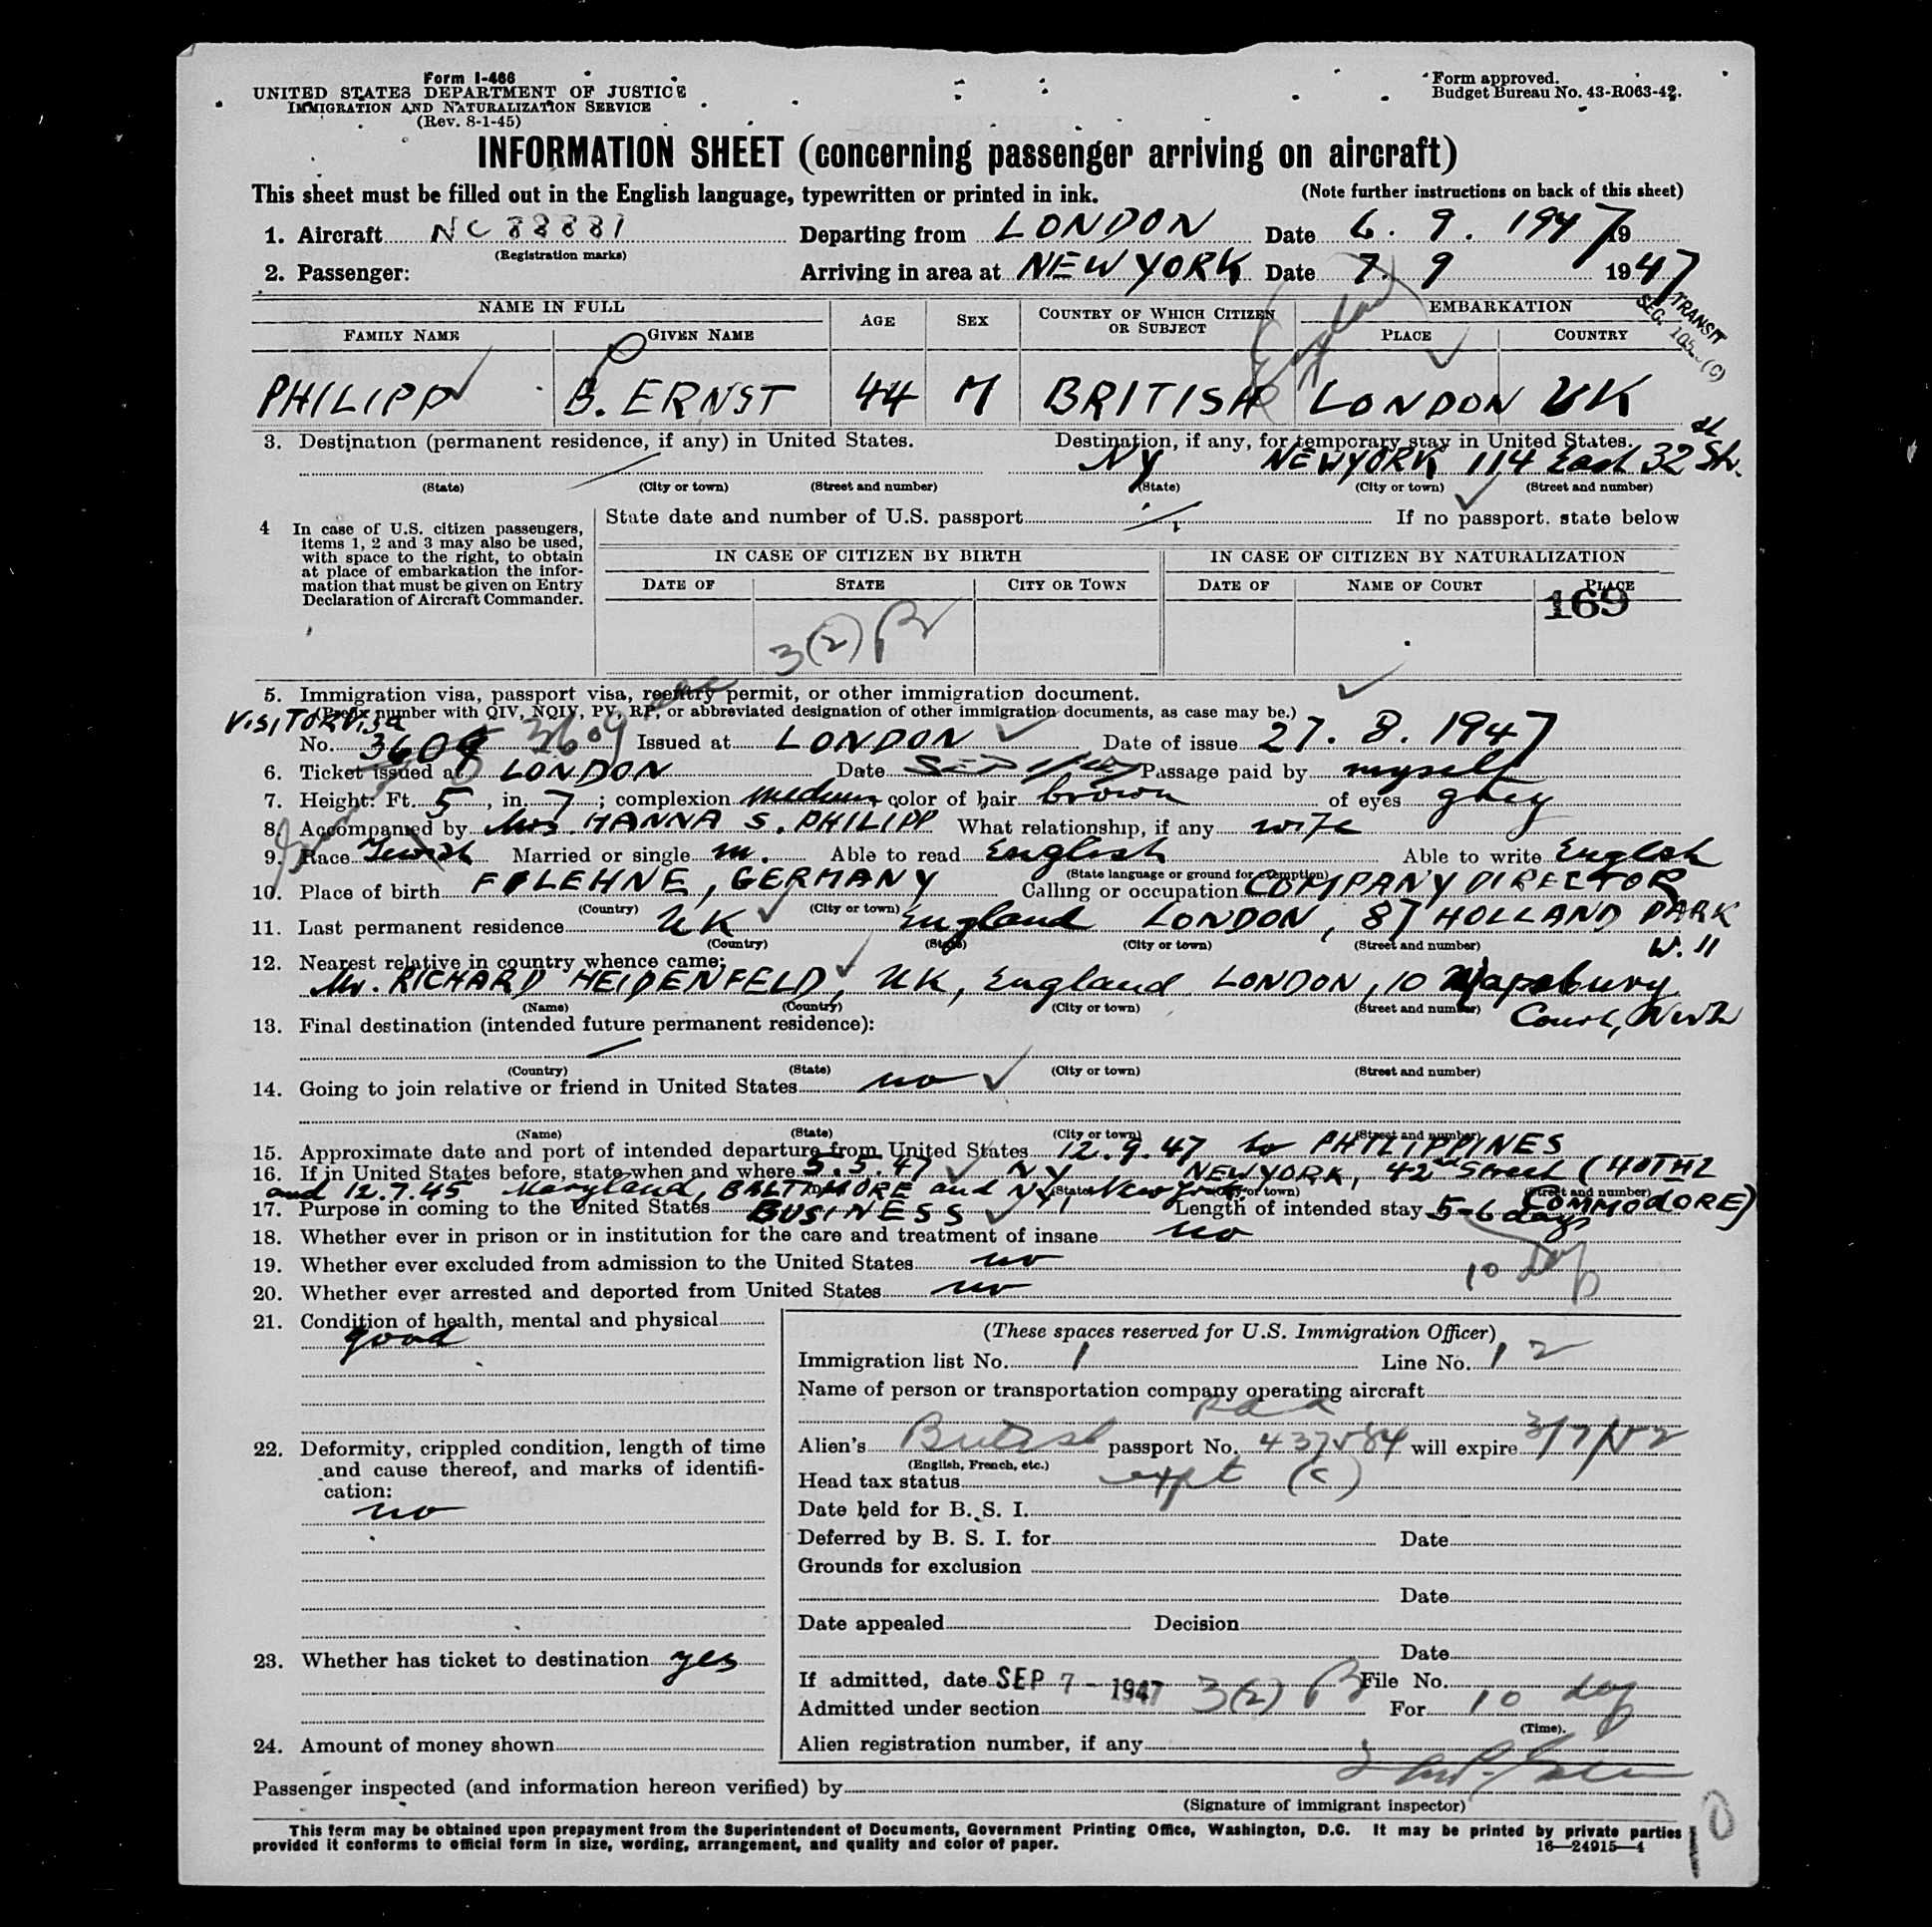 Form I-466
UNITED STATES DEPARTMENT OF JUSTICE
IMMIGRATION AND NATURALIZATION SERVICE
(Rev. 8-1-45)
Form approved.
Budget Bureau No. 43-R063-42.
INFORMATION SHEET (concerning passenger arriving on aircraft)
This sheet must be filled out in the English language, typewritten or printed in ink. (Note further instructions on back of this sheet)
1. Aircraft NC 88881 Departing from LONDON Date 6. 9. 1947 19
(Registration marks)
2. Passenger: Arriving in area at NEW YORK Date 7. 9 1947
TRANSIT
SEC. 105 (c)
NAME IN FULL AGE SEX COUNTRY OF WHICH CITIZEN OR SUBJECT EMBARKATION
FAMILY NAME GIVEN NAME PLACE COUNTRY
England
PHILIPP B. ERNST 44 M BRITISH LONDON UK
3. Destination (permanent residence, if any) in United States. Destination, if any, for temporary stay in United States.
NY NEWYORK 114 East 32 St.
(State) (City or town) (Street and number) (State) (City or town) (Street and number)
4 In case of U.S. citizen passengers, items 1, 2 and 3 may also be used, with space to the right, to obtain at place of embarkation the information that must be given on Entry Declaration of Aircraft Commander.
State date and number of U.S. passport If no passport. state below
IN CASE OF CITIZEN BY BIRTH IN CASE OF CITIZEN BY NATURALIZATION
DATE OF STATE CITY OR TOWN DATE OF NAME OF COURT PLACE
169
3(2) B
5. Immigration visa, passport visa, reentry permit, or other immigration document.
(Prefix number with QIV, NQIV, PV, RP, or abbreviated designation of other immigration documents, as case may be.)
VISITORVisa
No. 3609 3609 Issued at LONDON Date of issue 27. 8. 1947
6. Ticket issued at LONDON Date SEP Passage paid by myself
7. Height: Ft. 5, in. 7; complexion medium color of hair brown of eyes grey
8. Accompanied by Mrs. HANNA S. PHILIPP What relationship, if any wife
9. Race Jewish Married or single m. Able to read English Able to write English
(State language or ground for exemption)
10. Place of birth FILEHNE, GERMANY Calling or occupation COMPANY DIRECTOR
(Country) (City or town)
11. Last permanent residence UK England LONDON, 87 HOLLAND PARK
W. 11
(Country) (State) (City or town) (Street and number)
12. Nearest relative in country whence came:
Mr. RICHARD HEIDENFELD, UK, England LONDON, 10 Mapesbury
Court,
(Name) (Country) (City or town) (Street and number)
13. Final destination (intended future permanent residence):
(Country) (State) (City or town) (Street and number)
14. Going to join relative or friend in United States no
(Name) (State) (City or town) (Street and number)
15. Approximate date and port of intended departure from United States 12.9.47 to PHILIPPINES
16. If in United States before, state when and where 5.5.47 NY NEWYORK, 42nd Street (HOTEL
and 12.7.45 Maryland, BALTIMORE and NY, New York COMMODORE)
(State) (City or town) (Street and number)
17. Purpose in coming to the United States BUSINESS Length of intended stay 5-6 days
18. Whether ever in prison or in institution for the care and treatment of insane no
10 days
19. Whether ever excluded from admission to the United States no
20. Whether ever arrested and deported from United States no
21. Condition of health, mental and physical
good
22. Deformity, crippled condition, length of time
and cause thereof, and marks of identifi-
cation:
no
23. Whether has ticket to destination yes
24. Amount of money shown
(These spaces reserved for U.S. Immigration Officer)
Immigration list No. 1 Line No. 12
Name of person or transportation company operating aircraft
Paa
Alien's British passport No. 437584 will expire 3/7/52
(English, French, etc.)
Head tax status expt (c)
Date held for B. S. I.
Deferred by B. S. I. for Date
Grounds for exclusion
Date
Date appealed Decision
Date
If admitted, date SEP 7 - 1947 File No.
Admitted under section 3(2) B For 10 days
(Time).
Alien registration number, if any
Passenger inspected (and information hereon verified) by
(Signature of immigrant inspector)
This form may be obtained upon prepayment from the Superintendent of Documents, Government Printing Office, Washington, D.C. It may be printed by private parties
provided it conforms to official form in size, wording, arrangement, and quality and color of paper. 16—24915—4
10